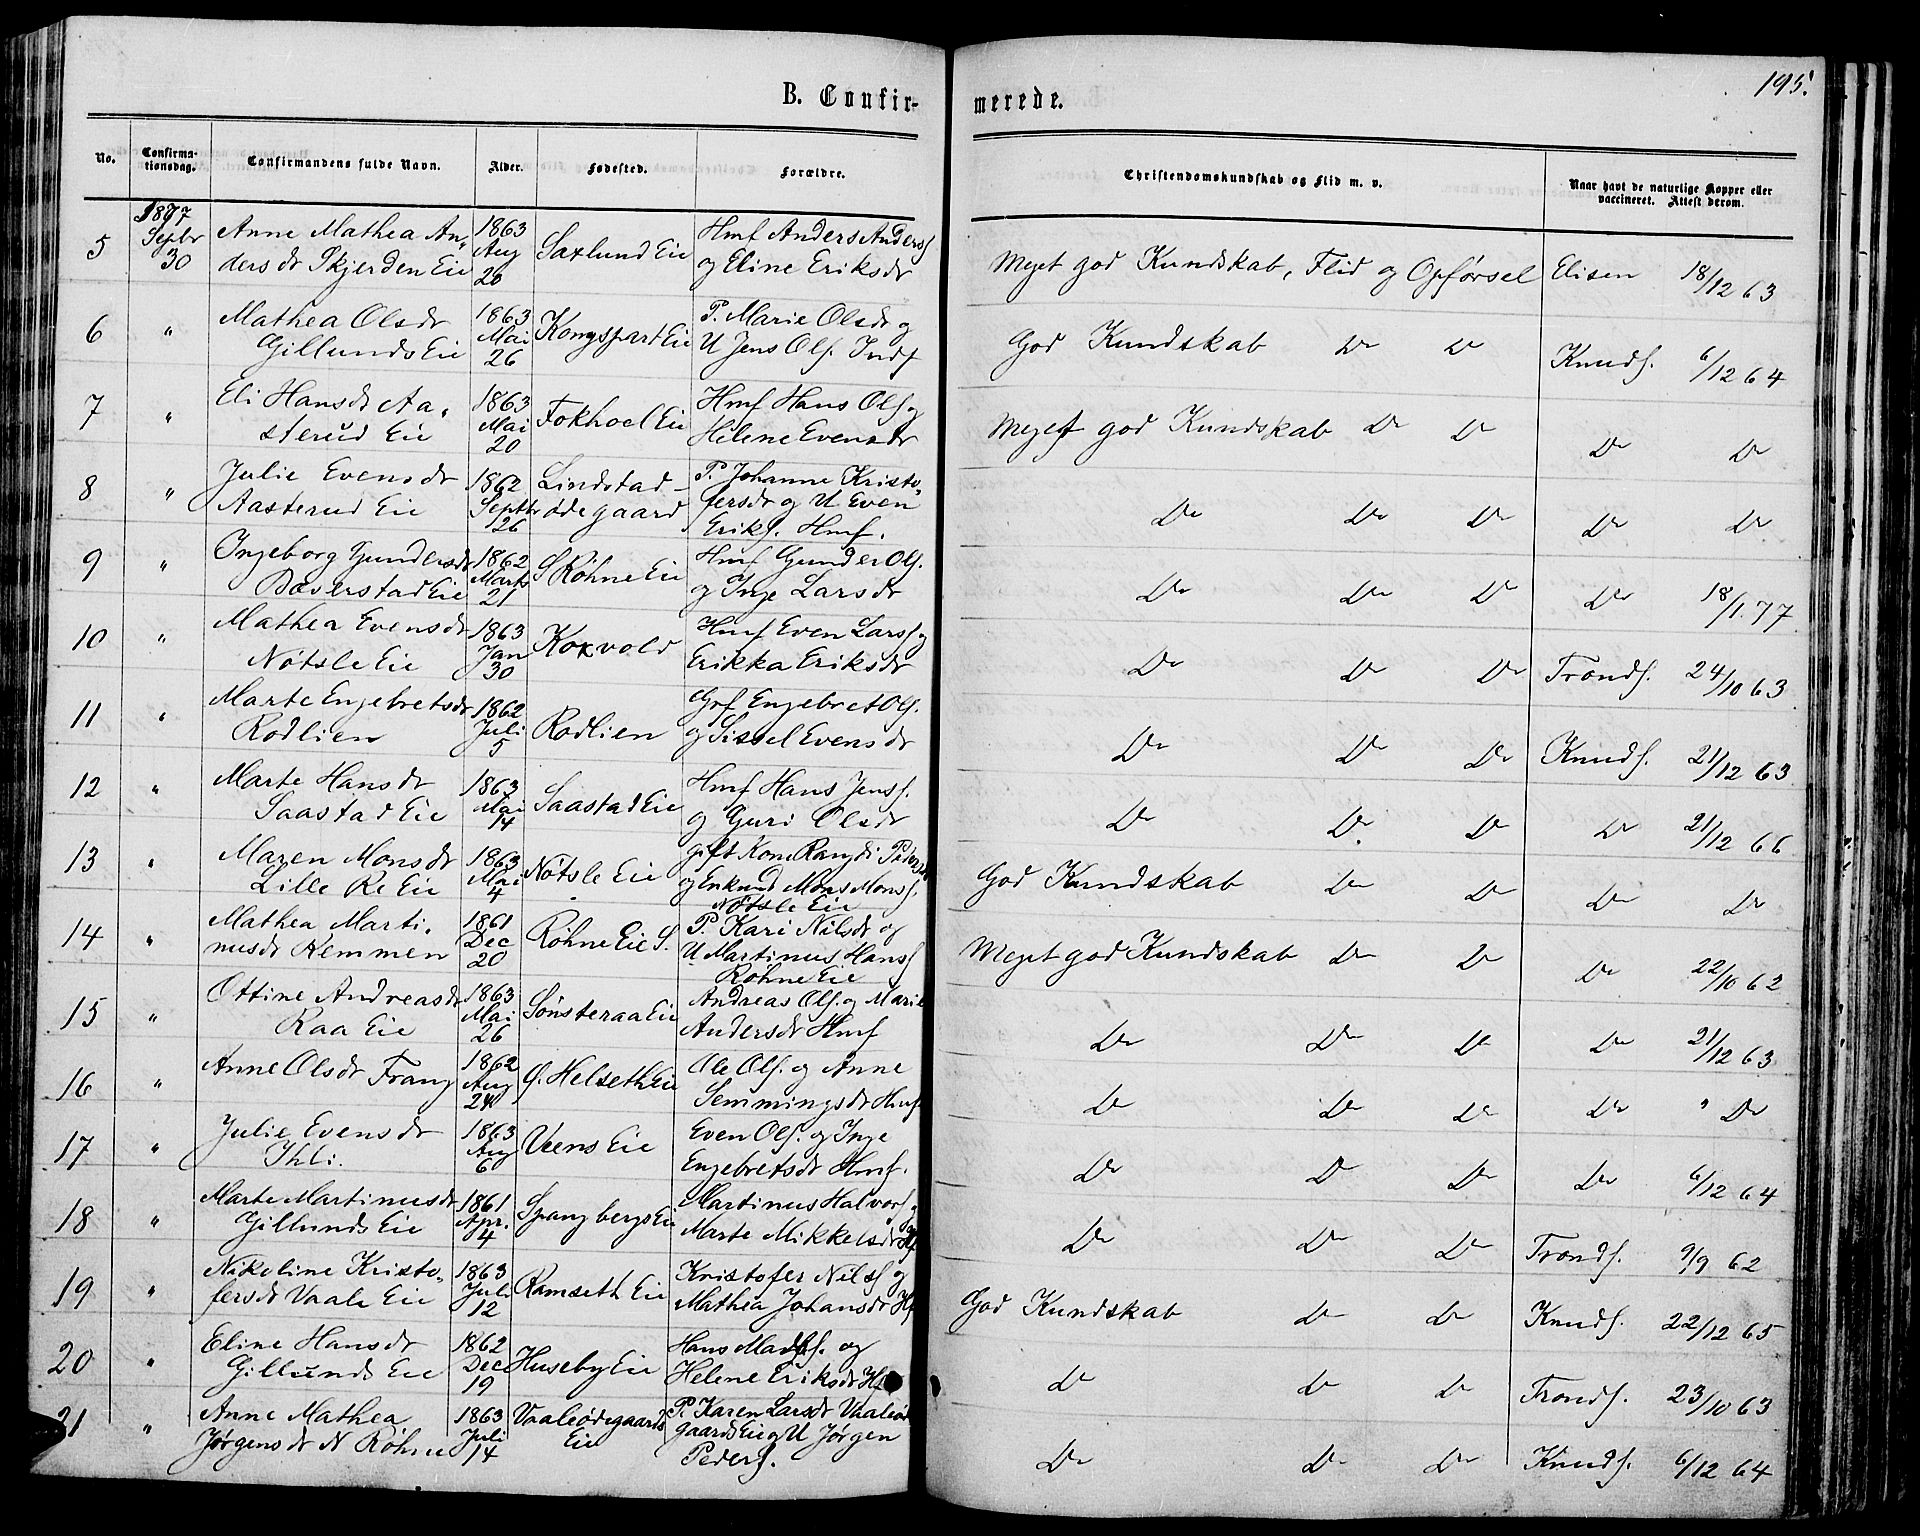 195.
B. Confir-
merede.
No.
Confirma-
tionsdag.
Confirmandens fulde Navn.
Alder.
Fødested.
Forældre.
Christendomskundskab og Flid m. v.
Naar havt de naturlige Kopper eller
vaccineret. Attest derom.
1877
5 Septbr 30 Anne Mathea An-
dersdr Skjerden Eie
1863
Aug
20
Saxlund Eie
Hmf Anders Anders.
og Eline Eriksdr
Meget god Kundskab, Flid og Opførsel Elisen 18/12 63
6 " Mathea Olsdr
Gillunds Eie
1863
Mai
26
Kongspart Eie
P. Marie Olsdr og
U Jens Ols. Indf
God Kundskab Do Do Knuds. 6/12 64
7 " Eli Hansdr Aa-
sterud Eie
1863
Mai
20
Fokhoel Eie
Hmf Hans Ols og
Helene Evensdr
Meget god Kundskab Do Do Do Do
8 " Julie Evensdr
Aasterud Eie
1862
Septbr
26
Lindstad-
ødegaard
P. Johanne Kristo-
fersdr og U Even
Eriks. Hmf.
Do Do Do Do Do
9 " Ingeborg Gundersdr
Bæverstad Eie
1862
Marts
21
S Røhne Eie
Hmf Gunder Ols.
og Inge Larsdr
Do Do Do Do 18/1.77
10 " Mathea Evensdr
Nøtsle Eie
1863
Jan
30
Koxvold
Hmf Even Lars og
Erikka Eriksdr
Do Do Do Tronds. 24/10 63
11 " Marte Engebretsdr
Rodlien
1862
Juli
5
Rodlien
Grf Engebret Ols.
og Sissel Evensdr
Do Do Do Knuds. 21/12 63
12 " Marte Hansdr
Saastad Eie
1863
Mai
14
Saastad Eie
Hmf Hans Jens.
og Guri Olsdr
Do Do Do Do 21/12 66
13 " Maren Monsdr
Lille Re Eie
1863
Mai
4
Nøtsle Eie
gift Kone Rangdi Pedersdr
og Enkmd Mons Mons.
Nøtsle Eie
God Kundskab Do Do Do Do
14 " Mathea Marti-
nusdr Remmen
1861
Dec
20
Røhne Eie S.
P. Kari Nilsdr og
U Martinus Hans
Røhne Eie
Meget god Kundskab Do Do Do 22/10 62
15 " Ottine Andreasdr
Raa Eie
1863
Mai
26
Sønsteraa Eie
Andreas Ols. og Marie
Andersdr Hmf
Do Do Do Do 21/12 63
16 " Anne Olsdr Frang
1862
Aug
24
Ø. Helseth Eie
Ole Ols. og Anne
Semmingsdr Hmf
Do Do Do Do " Do
17 " Julie Evensdr
Ihli.
1863
Aug
6
Veens Eie
Even Ols. og Inge
Engebretsdr Hmf.
Do Do Do Do 6/12 64
18 " Marte Martinusdr
Gillunds Eie
1861
Apr.
4
Spangbergs Eie
Martinus Halvors og
Marte Mikkelsdr Hf
Do Do Do Tronds. 9/9 62
19 " Nikoline Kristo-
fersdr Vaale Eie
1863
Juli
12
Ramseth Eie
Kristofer Nils og
Mathea Johansdr Hf
God Kundskab Do Do Knuds. 22/12 65
20 " Eline Hansdr
Gillunds Eie
1862
Dec
19
Huseby Eie
Hans Mads. og
Helene Eriksdr Hf
Do Do Do Tronds. 23/10 63
21 " Anne Mathea
Jørgensdr N Røhne
1863
Juli
14
Vaaleødegaards
Eie
P. Karen Larsdr Vaaleød
gaards Eie og U Jørgen
Peders.
Do Do Do Knuds. 6/12 64